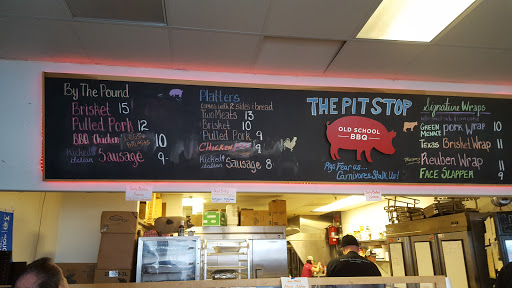 By The Pound
Brisket 15
Pulled Pork 12
BBQ Chicken 10
Sausage 9
Platters
comes with 2 sides & bread
Two Meats 13
Brisket 10
Pulled Pork 9
Chicken 9
Sausage 8
THE PIT STOP
OLD SCHOOL
BBQ
Pigs Fear us...
Carnivores Stalk Us!
Signature Wraps
GREEN MONKEY Pork Wrap 10
TEXAS Brisket Wrap 11
Reuben Wrap 11
FACE SLAPPER 11